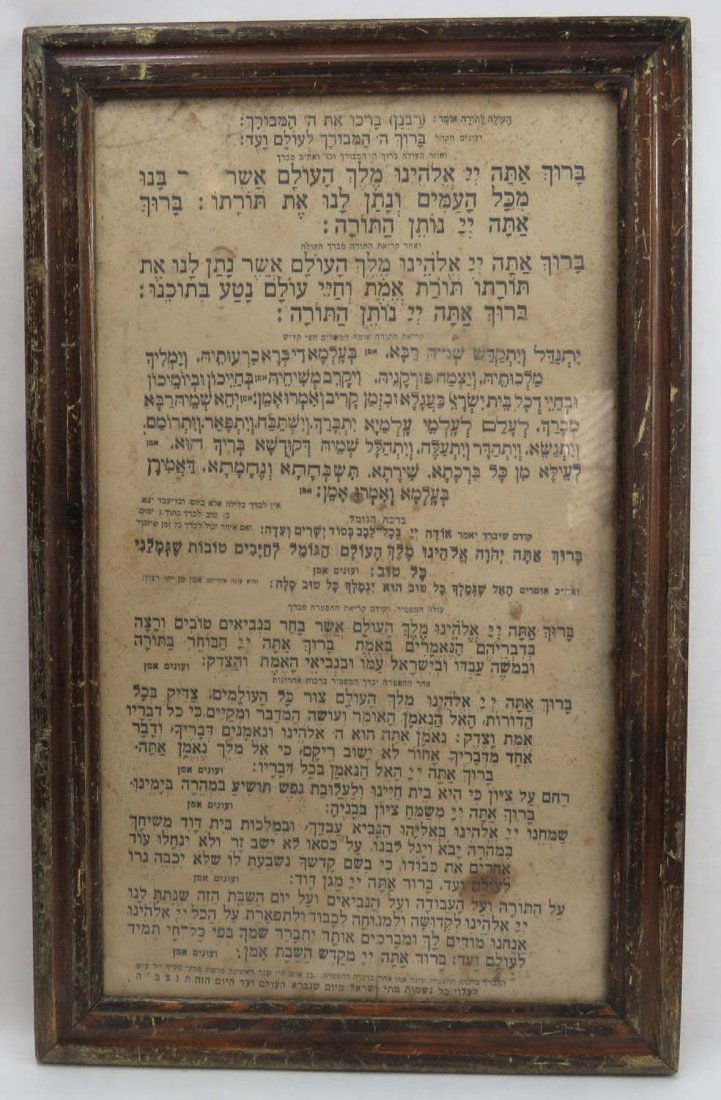 העולה לתורה אומר: (רבנן) בָּרְכוּ אֶת ה' הַמְבוֹרָךְ:
ועונים הקהל בָּרוּךְ ה' הַמְבוֹרָךְ לְעוֹלָם וָעֶד:
וחוזר העולה ברוך ה' המבורך וכו' ואח"כ מברך
בָּרוּךְ אַתָּה יְיָ אֱלֹהֵינוּ מֶלֶךְ הָעוֹלָם אֲשֶׁר ר בָּנוּ
מִכָּל הָעַמִּים וְנָתַן לָנוּ אֶת תּוֹרָתוֹ: בָּרוּךְ
אַתָּה יְיָ נוֹתֵן הַתּוֹרָה:
ואחר קריאת התורה מברך העולה
בָּרוּךְ אַתָּה יְיָ אֱלֹהֵינוּ מֶלֶךְ הָעוֹלָם אֲשֶׁר נָתַן לָנוּ אֶת
תּוֹרָתוֹ תּוֹרַת אֱמֶת וְחַיֵּי עוֹלָם נָטַע בְּתוֹכֵנוּ:
בָּרוּךְ אַתָּה יְיָ נוֹתֵן הַתּוֹרָה:
קריאת התורה אומר המשלים חצי קדיש
יִתְגַּדַּל וְיִתְקַדַּשׁ שְׁמֵיהּ רַבָּא. אמן בְּעָלְמָא דִי בְרָא כִרְעוּתֵיהּ. וְיַמְלִיךְ
מַלְכוּתֵיהּ. וְיַצְמַח פּוּרְקָנֵיהּ. וִיקָרֵב מְשִׁיחֵיהּ אמן בְּחַיֵּיכוֹן וּבְיוֹמֵיכוֹן
וּבְחַיֵּי דְכָל בֵּית יִשְׂרָאֵל בַּעֲגָלָא וּבִזְמַן קָרִיב וְאִמְרוּ אָמֵן: אמן יְהֵא שְׁמֵיהּ רַבָּא
מְבָרַךְ. לְעָלַם לְעָלְמֵי עָלְמַיָּא יִתְבָּרַךְ. וְיִשְׁתַּבַּח. וְיִתְפָּאַר. וְיִתְרוֹמַם.
וְיִתְנַשֵּׂא. וְיִתְהַדָּר. וְיִתְעַלֶּה. וְיִתְהַלָּל שְׁמֵיהּ דְּקוּדְשָׁא בְּרִיךְ הוּא. אמן
לְעֵילָּא מִן כָּל בִּרְכָתָא. שִׁירָתָא. תִּשְׁבְּחָתָא וְנֶחָמָתָא. דַּאֲמִירָן
בְּעָלְמָא וְאִמְרוּ אָמֵן: אמן
אין לברך בלילה אלא ביום. ובדיעבד יצא.
ברכת הגומל
קודם שיברך יאמר אוֹדֶה יְיָ בְּכָל לֵבָב בְּסוֹד יְשָׁרִים וְעֵדָה: ואם איחר יכול לברך כל זמן שיזכור
בָּרוּךְ אַתָּה יְהֹוָה אֱלֹהֵינוּ מֶלֶךְ הָעוֹלָם הַגּוֹמֵל לְחַיָּבִים טוֹבוֹת שֶׁגְּמָלַנִי
כָּל טוֹב: ועונים אמן
ואח"כ אומרים הָאֵל שֶׁגְּמָלְךָ כָּל טוֹב הוּא יִגְמָלְךָ כָּל טוֹב סֶלָה: והוא עונה אחריהם אמן כן יהי רצון:
עולה המפטיר, וקודם קריאת ההפטרה מברך
בָּרוּךְ אַתָּה יְיָ אֱלֹהֵינוּ מֶלֶךְ הָעוֹלָם אֲשֶׁר בָּחַר בִּנְבִיאִים טוֹבִים וְרָצָה
בְדִבְרֵיהֶם הַנֶּאֱמָרִים בֶּאֱמֶת בָּרוּךְ אַתָּה יְיָ הַבּוֹחֵר בַּתּוֹרָה
וּבְמֹשֶׁה עַבְדּוֹ וּבְיִשְׂרָאֵל עַמּוֹ וּבִנְבִיאֵי הָאֱמֶת וְהַצֶּדֶק: ועונים אמן
אחר ההפטרה יברך המפטיר ברכות אחרונות
בָּרוּךְ אַתָּה יְיָ אֱלֹהֵינוּ מֶלֶךְ הָעוֹלָם צוּר כָּל הָעוֹלָמִים, צַדִּיק בְּכָל
הַדּוֹרוֹת, הָאֵל הַנֶּאֱמָן הָאוֹמֵר וְעוֹשֶׂה הַמְדַבֵּר וּמְקַיֵּים, כִּי כָל דְּבָרָיו
אֱמֶת וָצֶדֶק: נֶאֱמָן אַתָּה הוּא ה' אֱלֹהֵינוּ וְנֶאֱמָנִים דְּבָרֶיךָ, וְדָבָר
אֶחָד מִדְּבָרֶיךָ אָחוֹר לֹא יָשׁוּב רֵיקָם, כִּי אֵל מֶלֶךְ נֶאֱמָן אָתָּה.
בָּרוּךְ אַתָּה יְיָ הָאֵל הַנֶּאֱמָן בְּכָל דְּבָרָיו: ועונים אמן
רַחֵם עַל צִיּוֹן כִּי הִיא בֵּית חַיֵּינוּ וְלַעֲלוּבַת נֶפֶשׁ תּוֹשִׁיעַ בִּמְהֵרָה בְיָמֵינוּ.
בָּרוּךְ אַתָּה יְיָ מְשַׂמֵּחַ צִיּוֹן בְּבָנֶיהָ: ועונים אמן
שַׂמְּחֵנוּ יְיָ אֱלֹהֵינוּ בְּאֵלִיָּהוּ הַנָּבִיא עַבְדֶּךָ, וּבְמַלְכוּת בֵּית דָּוִד מְשִׁיחֶךָ
בִּמְהֵרָה יָבֹא וְיָגֵל לִבֵּנוּ. עַל כִּסְאוֹ לֹא יֵשֶׁב זָר וְלֹא יִנְחֲלוּ עוֹד
אֲחֵרִים אֶת כְּבוֹדוֹ כִּי בְשֵׁם קָדְשְׁךָ נִשְׁבַּעְתָּ לּוֹ שֶׁלֹּא יִכְבֶּה נֵרוֹ
לְעוֹלָם וָעֶד. בָּרוּךְ אַתָּה יְיָ מָגֵן דָּוִד: ועונים אמן
עַל הַתּוֹרָה וְעַל הָעֲבוֹדָה וְעַל הַנְּבִיאִים וְעַל יוֹם הַשַּׁבָּת הַזֶּה שֶׁנָּתַתָּ לָּנוּ
יְיָ אֱלֹהֵינוּ לִקְדוּשָׁה וְלִמְנוּחָה לְכָבוֹד וּלְתִפְאָרֶת עַל הַכֹּל יְיָ אֱלֹהֵינוּ
אֲנַחְנוּ מוֹדִים לָךְ וּמְבָרְכִים אוֹתָךְ יִתְבָּרַךְ שִׁמְךָ בְּפִי כָל חַי תָּמִיד
לְעוֹלָם וָעֶד: בָּרוּךְ אַתָּה יְיָ מְקַדֵּשׁ הַשַּׁבָּת אָמֵן. ועונים אמן
המברך ברכות ההפטרה, עונה אמן אחר ברכות ההפטרה. בן איש חי, שנה ראשונה פרשת מסעי סעיף
לעלוי כל נשמות מתי ישראל מיום שנברא העולם ועד היום הזה ת נ צ ב " ה.